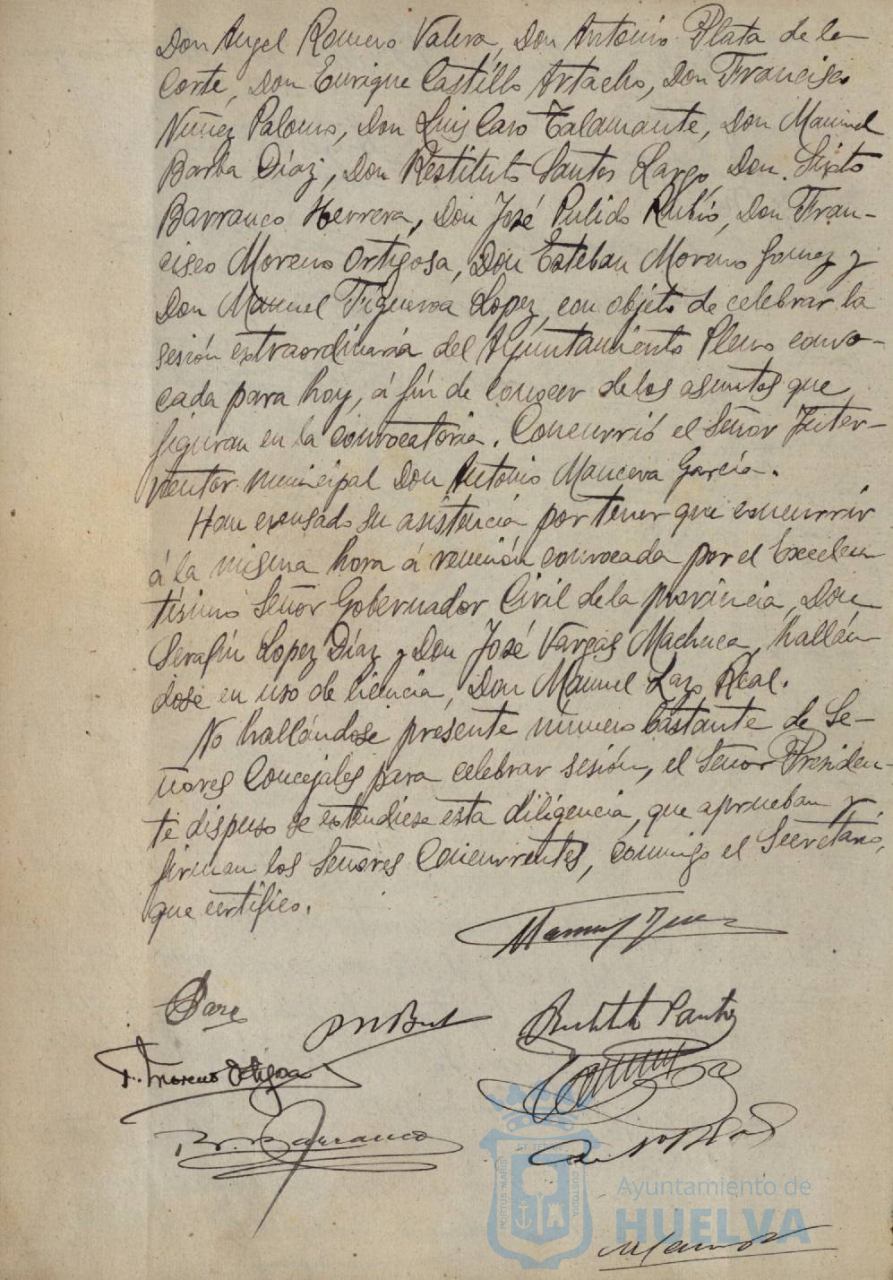 Don Angel Romero Valera, Don Antonio Plata de la
Corte, Don Enrique Castillo Artacho, Don Francisco
Nuñez Palomo, Don Luis Caro Talamante, Don Manuel
Barba Díaz, Don Restituto Santos Largo, Don Sixto
Barranco Herrera, Don José Pulido Rubio, Don Fran-
cisco Moreno Ortigosa, Don Esteban Moreno Gomez y
Don Manuel Figueroa Lopez, con objeto de celebrar la
sesión extraordinaria del Ayuntamiento Pleno convo-
cada para hoy, á fin de conocer de los asuntos que
figuran en la convocatoria. Concurrió el Señor Inter-
ventor municipal Don Antonio Mancera García.
Han excusado su asistencia por tener que concurrir
á la misma hora á reunión convocada por el Excelen
tísimo Señor Gobernador Civil de la provincia, Don
Serafín Lopez Díaz y Don José Vargas Machuca, hallán
dose en uso de licencia, Don Manuel Lazo Real.
No hallándose presente número bastante de Se-
ñores Concejales para celebrar sesión, el Señor Presiden-
te dispuso se extendiese esta diligencia, que aprueban y
firman los Señores Concurrentes, conmigo el Secretario,
que certifico.
Restituto Santos
F. Moreno Ortigosa
Barranco
PORTUS MARIS
CUSTODIA
Ayuntamiento de
HUELVA